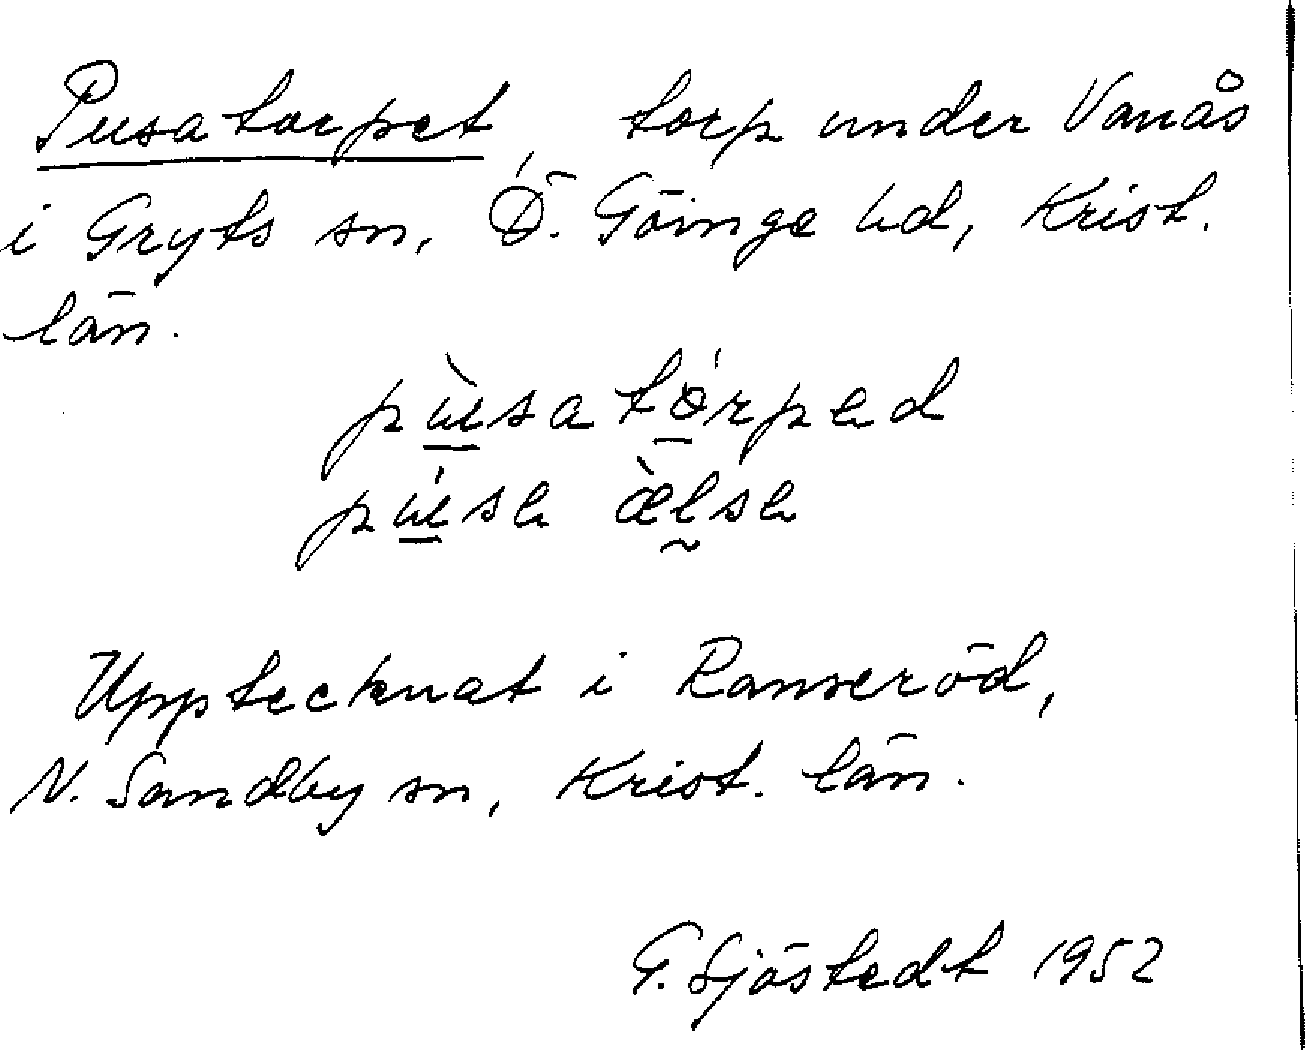 Pusatorpet, torp under Vanås
i Gryts sn, Ö. Göinge hd, Krist.
län.
pùsatórped
púse ælse
Upptecknat i Ranseröd,
N. Sandby sn, Krist. län.
G. Sjöstedt 1952